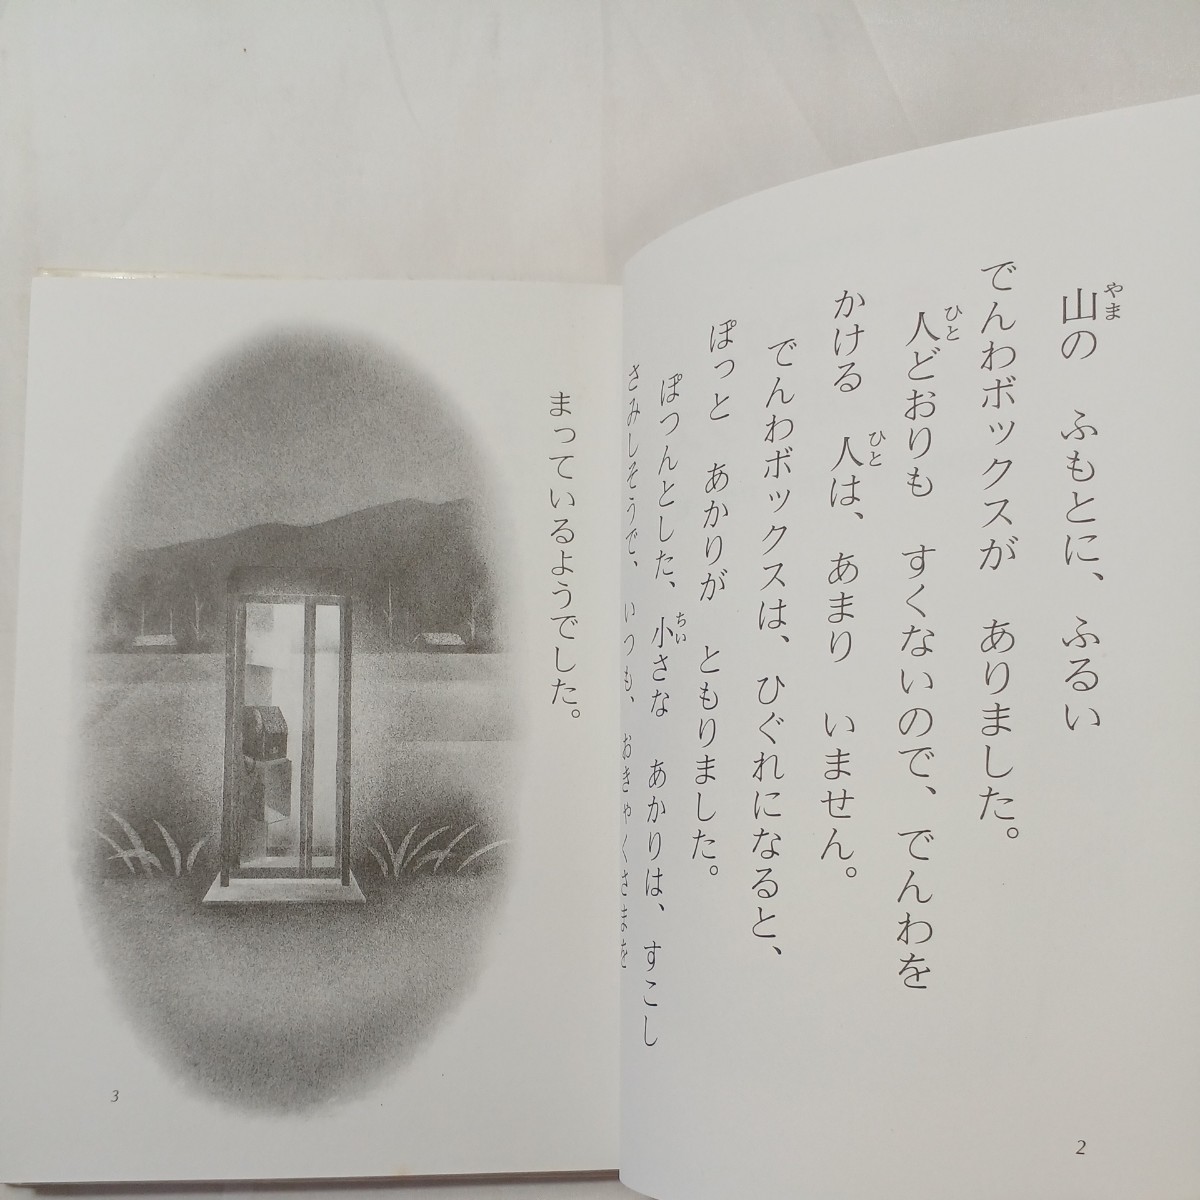 山の　ふもとに、ふるい
やま
でんわボックスが　ありました。
人どおりも　すくないので、でんわを
ひと
かける　人は、あまり　いません。
ひと
でんわボックスは、ひぐれになると、
ぽっと　あかりが　ともりました。
ぽつんとした、小さな　あかりは、すこし
ちい
さみしそうで、いつも、おきゃくさまを
2
まっているようでした。
3